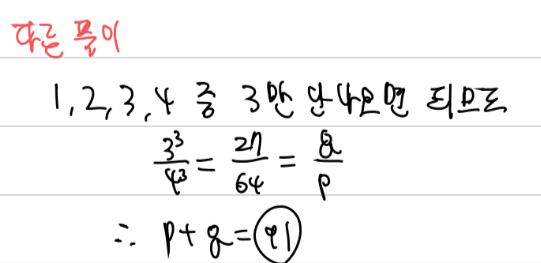 다른 풀이
1, 2, 3, 4 중 3만 안나오면 되므로
3³/4³ = 27/64 = q/p
∴ p+q = 91